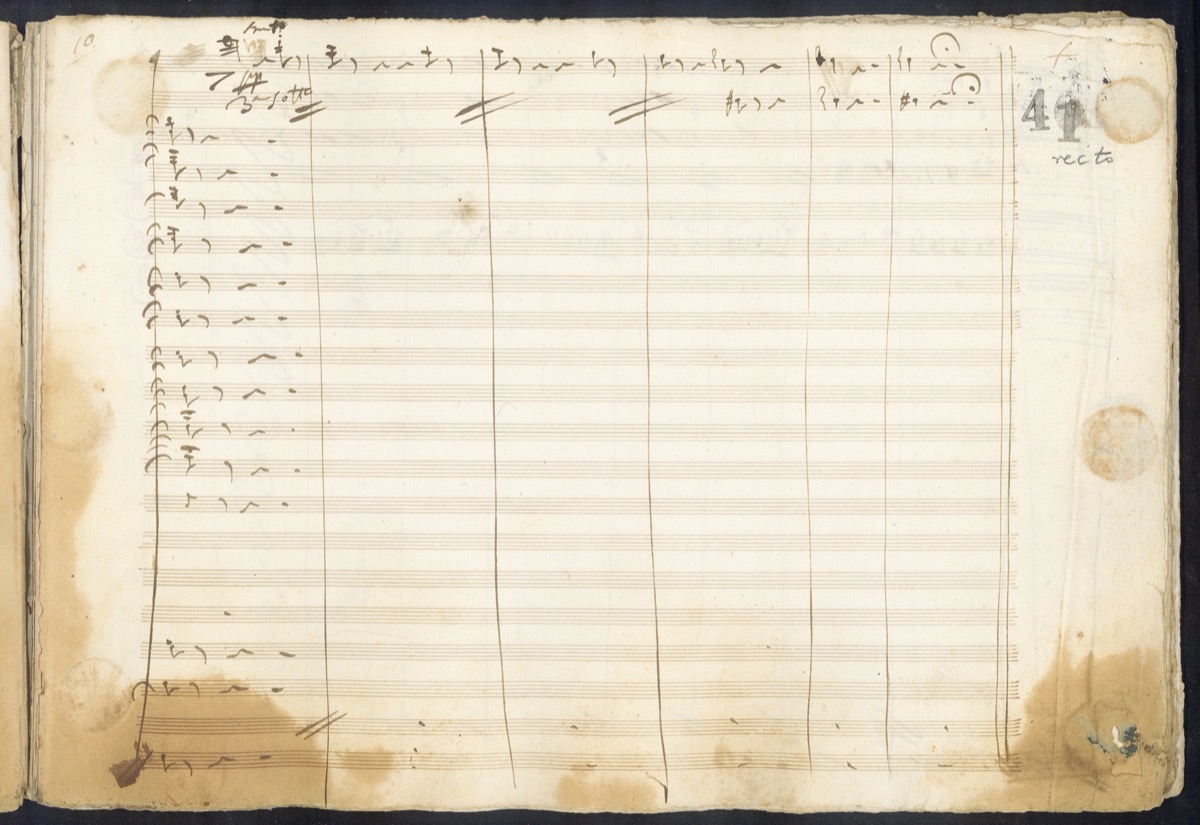 10
ff
3ª sotto
41
recto